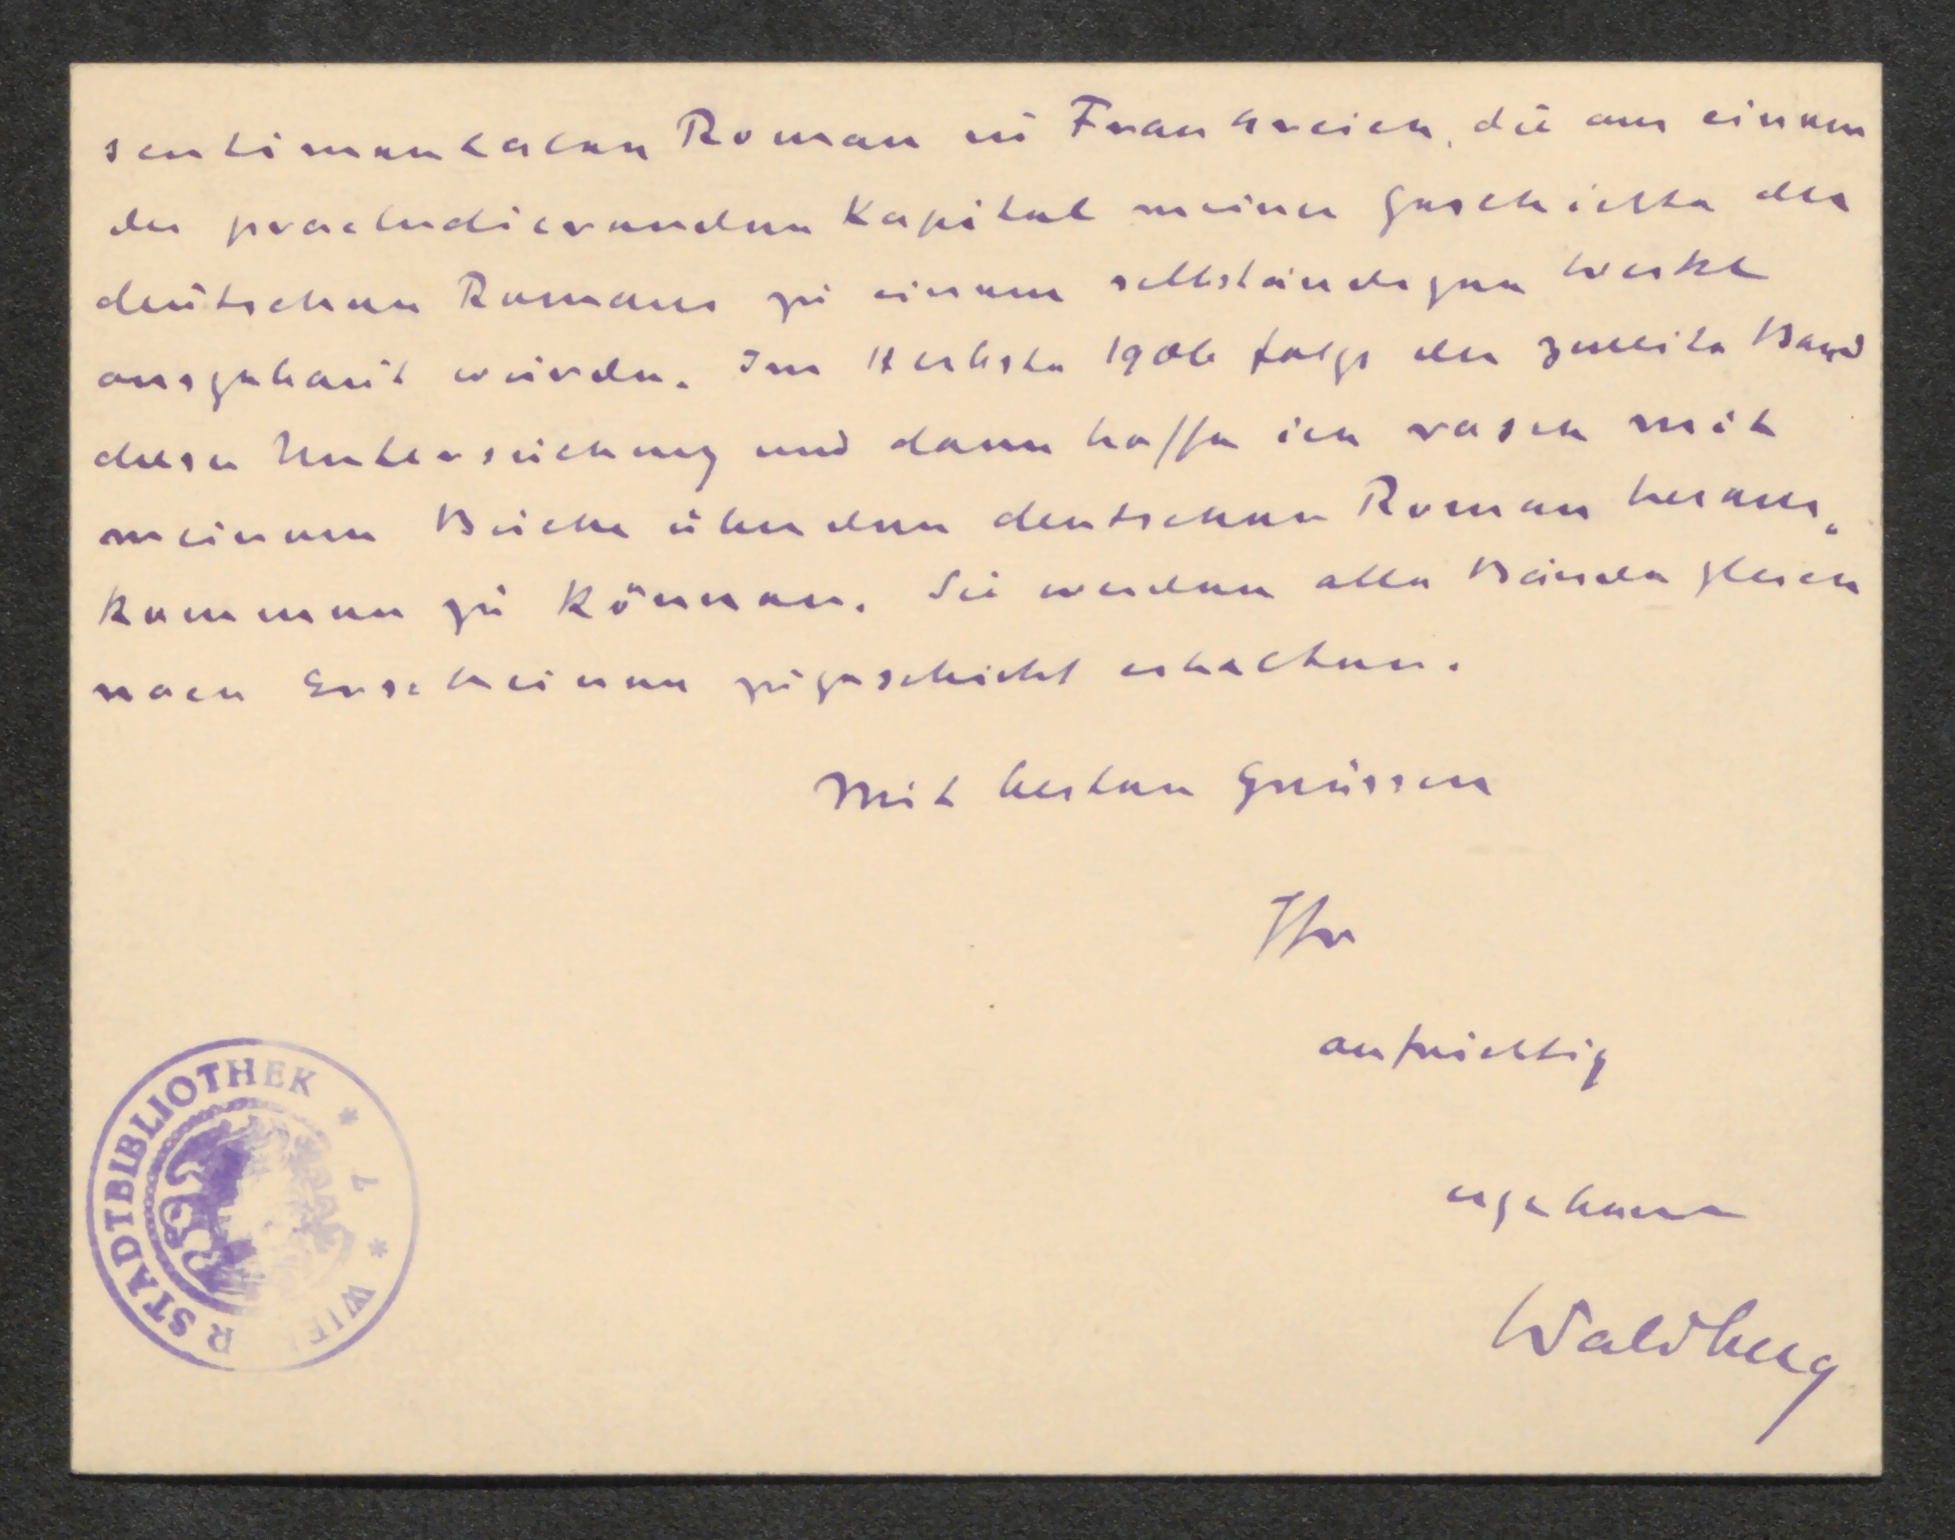 sentimentalen Roman in Frankreich, die aus einem
der praeludierenden Kapitel meiner Geschichte des
deutschen Romans zu einem selbständigen Werke
ausgebaut wurde. Im Herbste 1906 folgt der zweite Band
dieser Untersuchung und dann hoffe ich rasch mit
meinem Buche über den deutschen Roman heraus-
kommen zu können. Sie werden alle Bände gleich
nach Erscheinen zugeschickt erhalten.
Mit besten Grüssen
Ihr
aufrichtig
ergebener
Waldberg
R STADTBIBLIOTHEK * * WIE